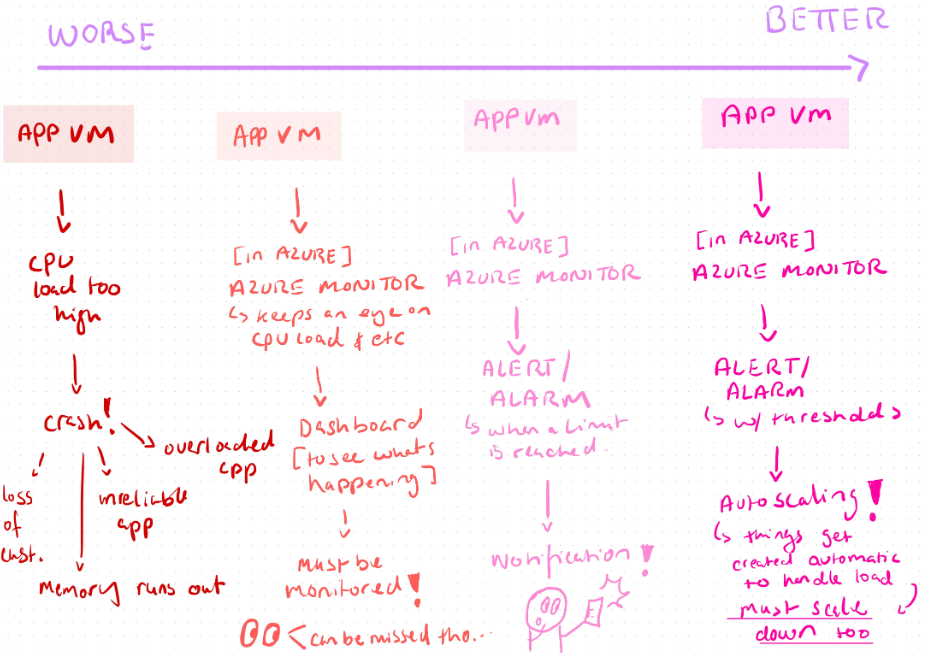 WORSE
BETTER
APP VM
CPU
load too
high
crash!
overloaded
app
loss
of
cust.
unreliable
app
memory runs out
APP VM
[in AZURE]
AZURE MONITOR
↳ keeps an eye on
CPU load & etc
Dashboard
[to see whats
happening]
Must be
monitored!
< can be missed tho...
APP Vm
[in AZURE]
AZURE MONITOR
ALERT/
ALARM
↳ when a limit
is reached.
Notification!
APP Vm
[in AZURE]
AZURE MONITOR
ALERT/
ALARM
↳ w/ thresholds
Autoscaling!
↳ things get
created automatic
to handle load
must scale
down too